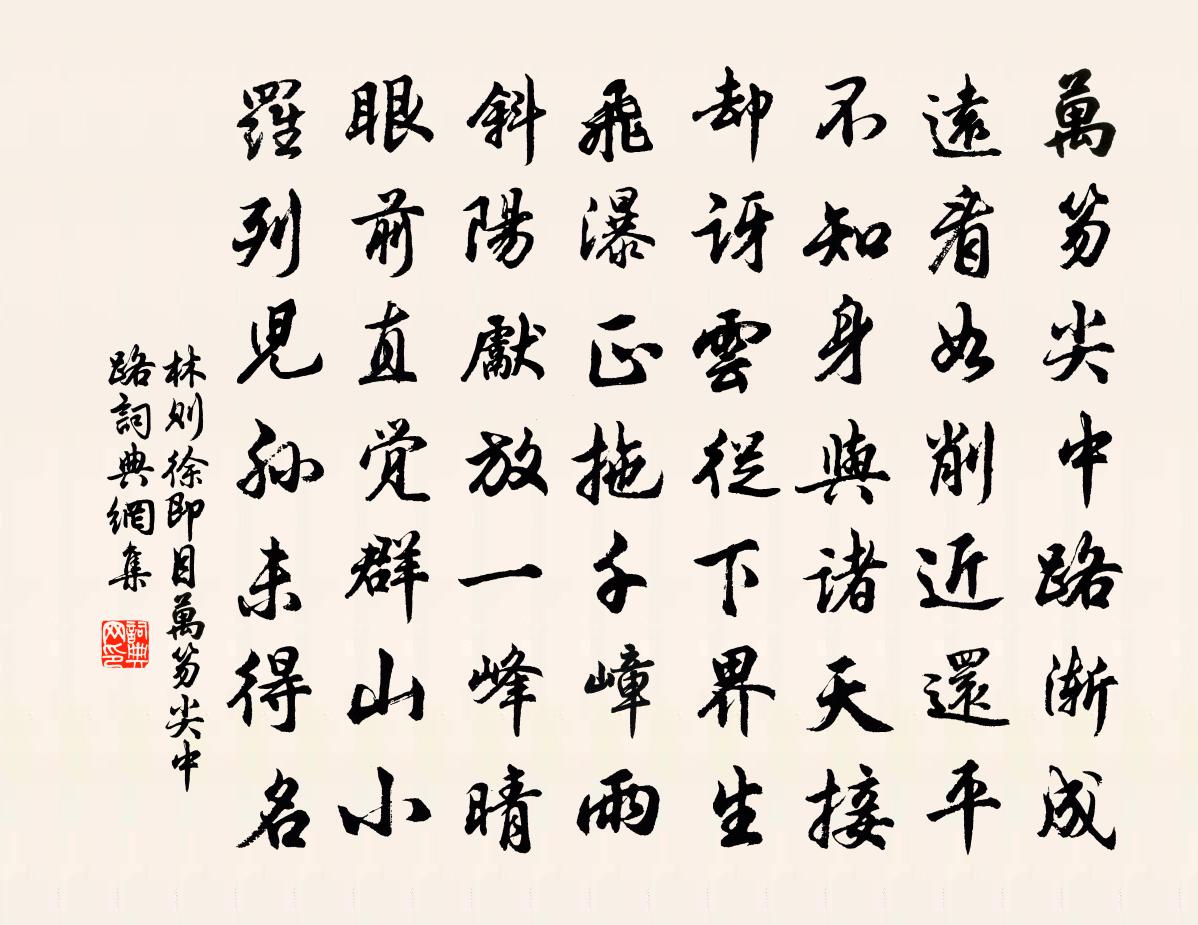 萬笏尖中路漸成
遠看如削近還平
不知身與諸天接
却訝雲從下界生
飛瀑正拖千嶂雨
斜陽獻放一峰晴
眼前直覺群山小
羅列兒孫未得名
林则徐即目萬笏尖中
路詞典網集
詞典网印